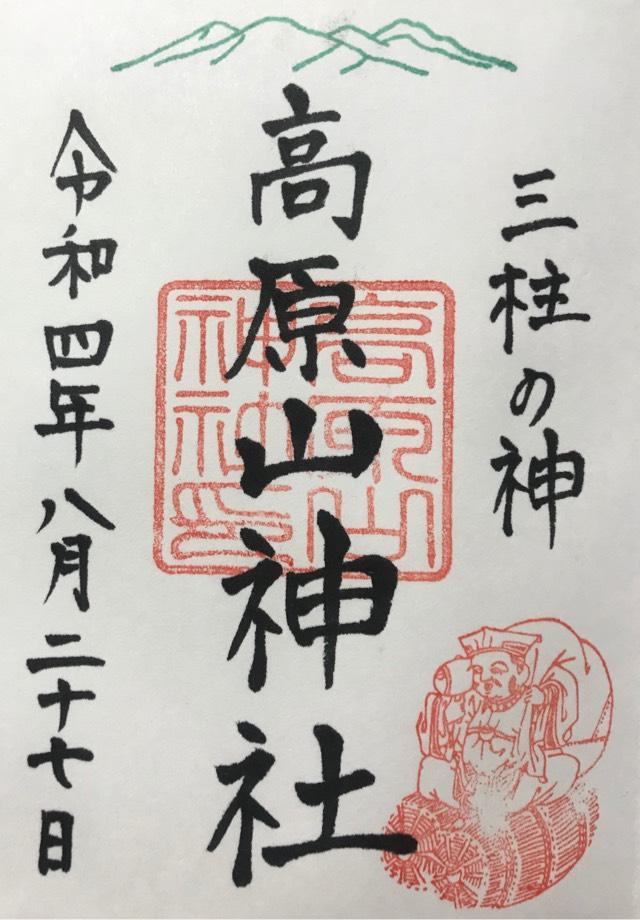 三柱の神
高原山神社
高原山神社印
令和四年八月二十七日